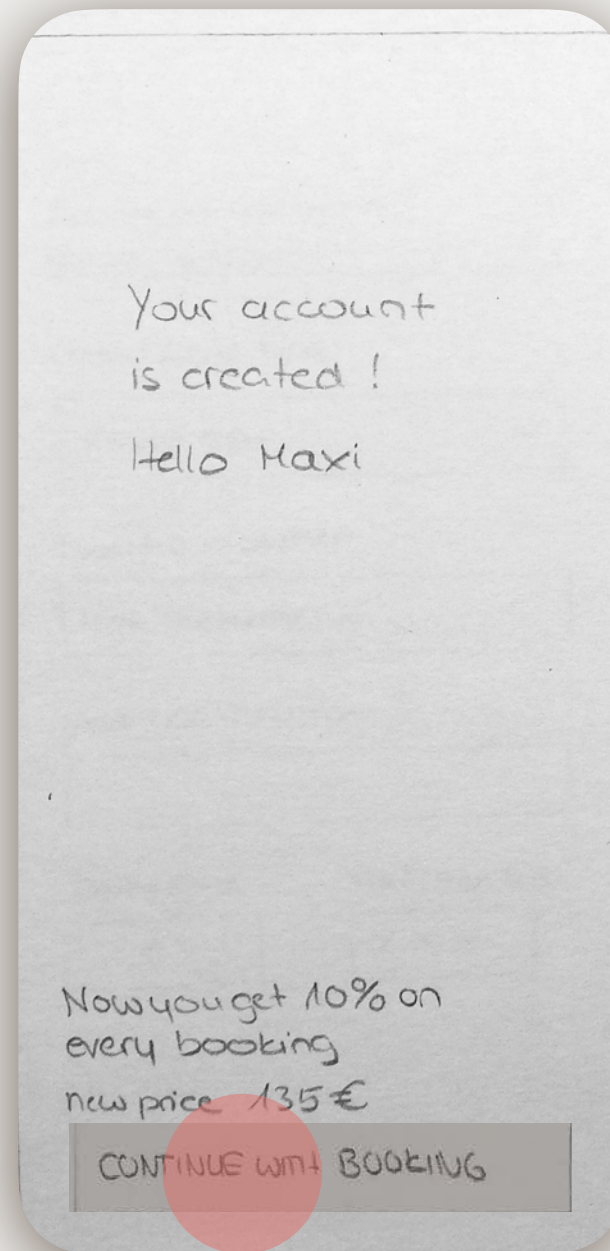 Your account
is created !
Hello Maxi
Now you get 10% on
every booking
new price 135 €
CONTINUE WITH BOOKING